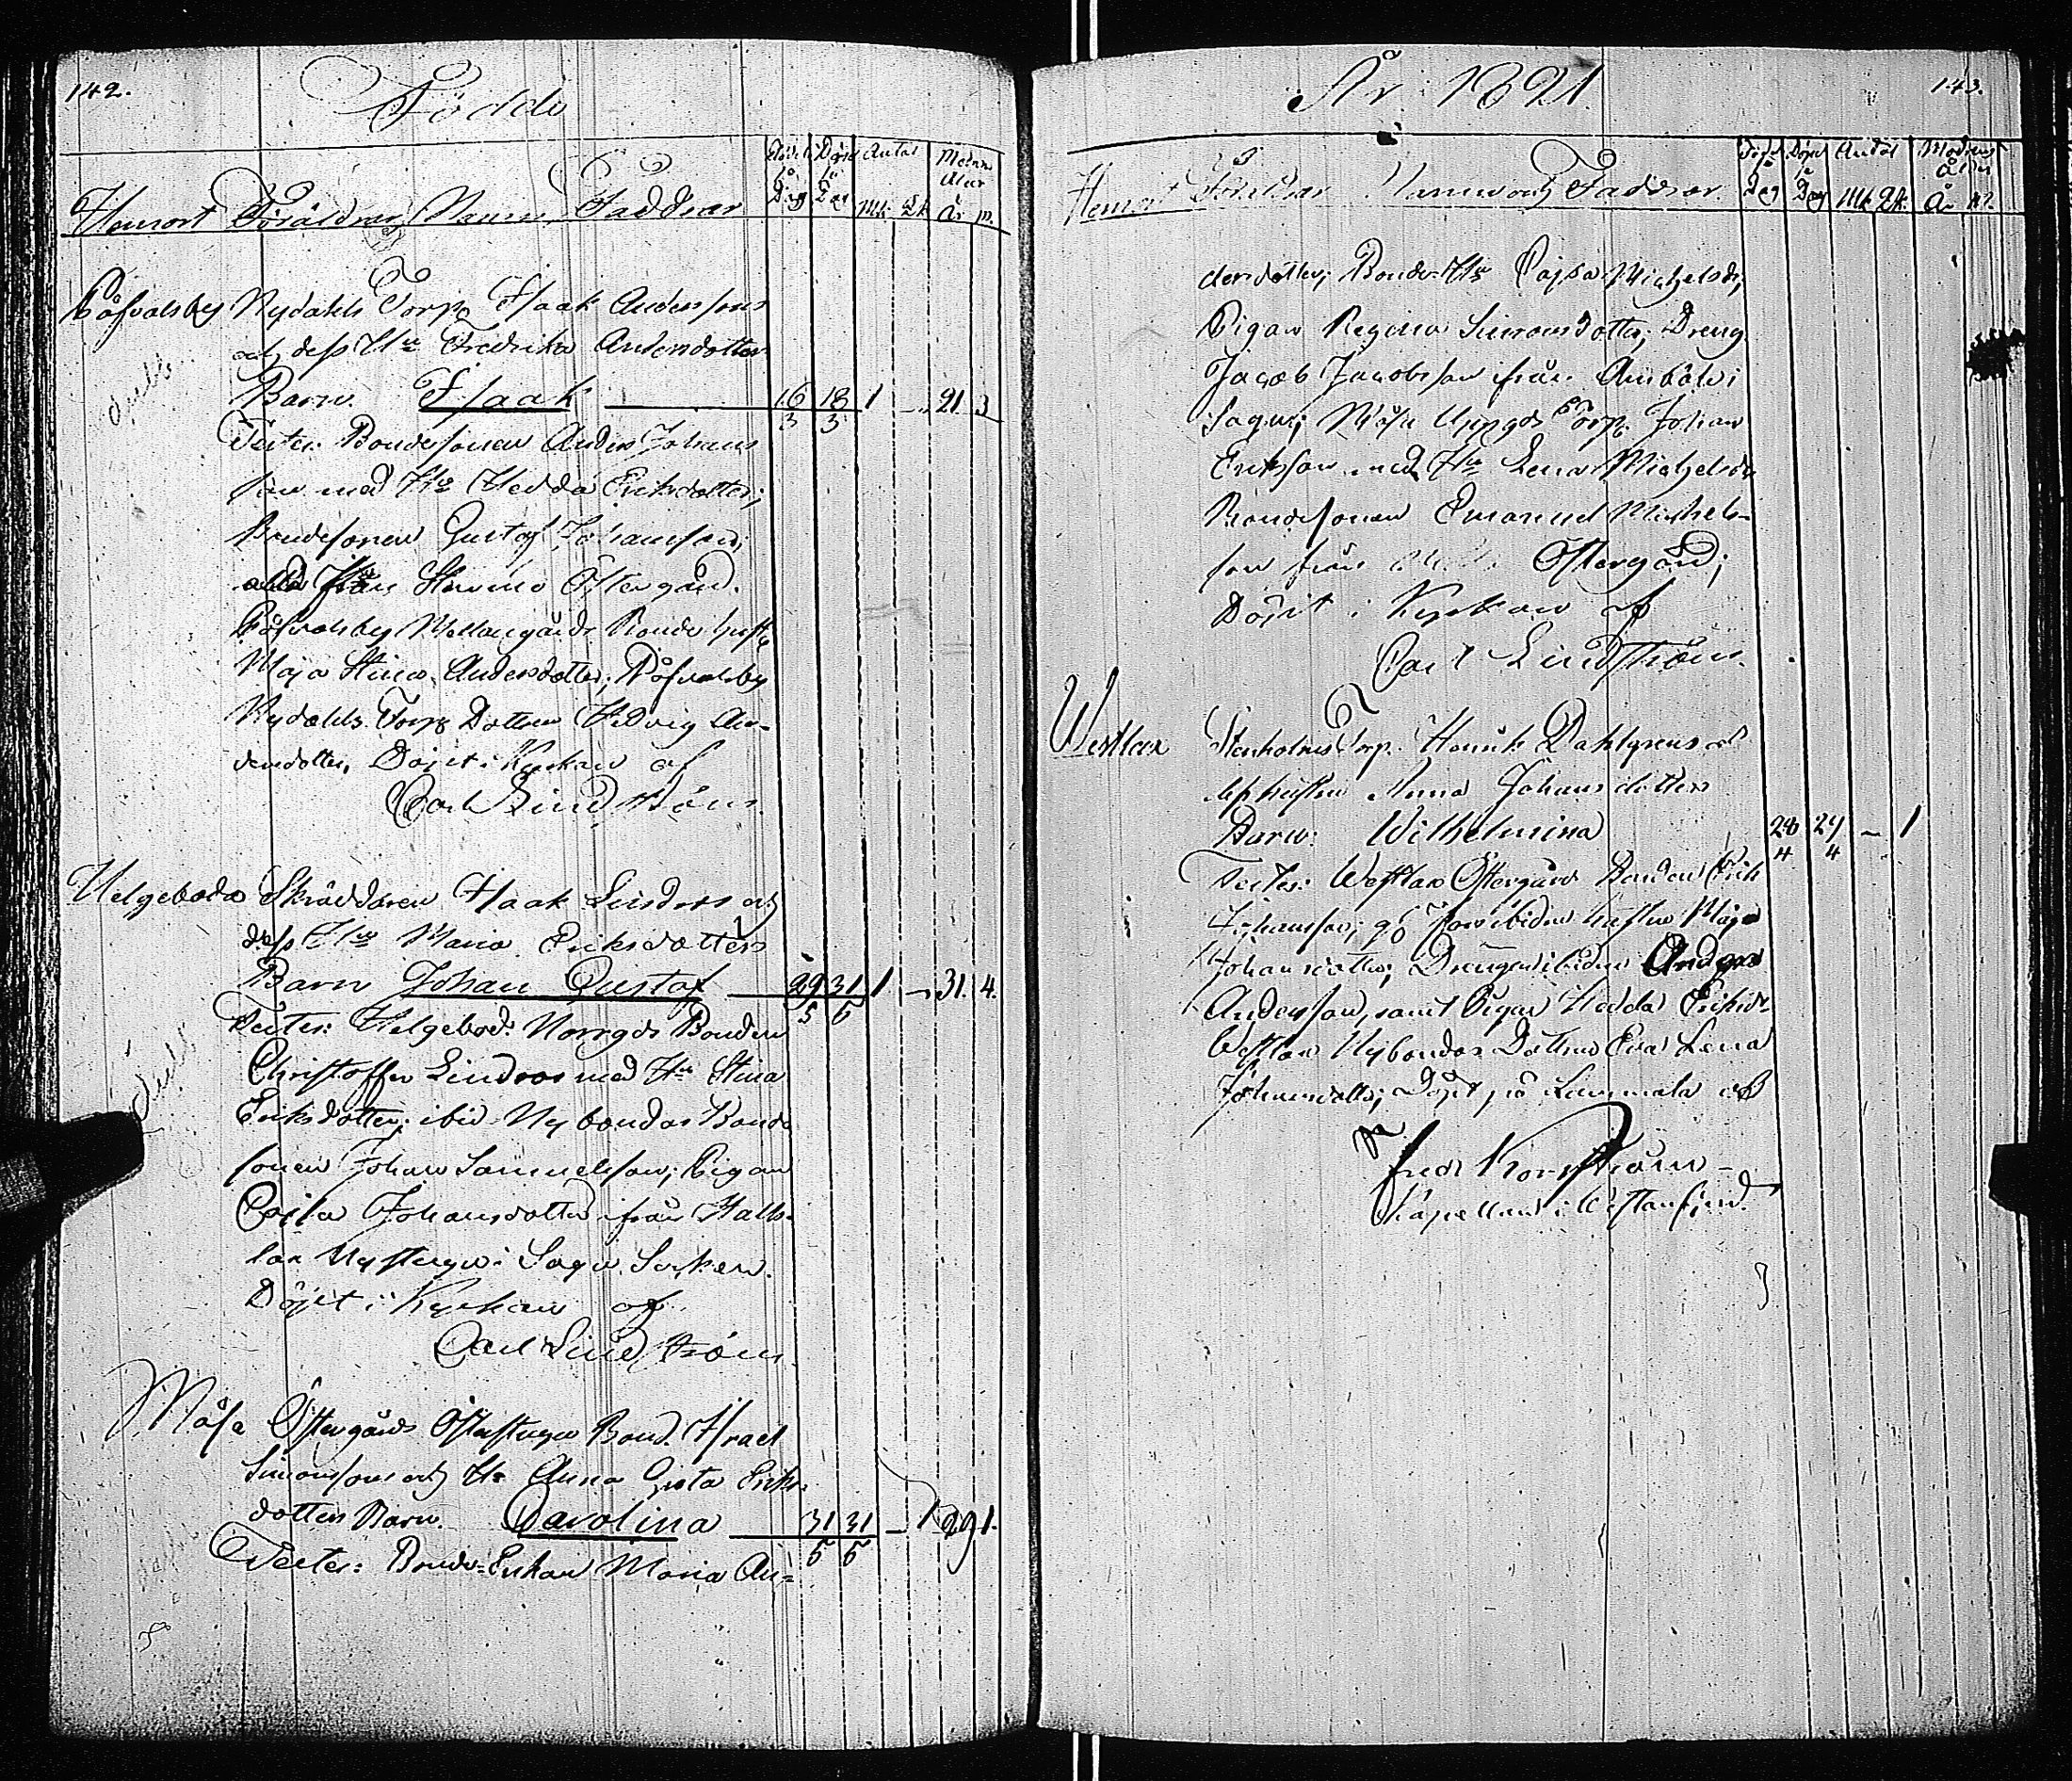 142.
Födde
Hemort Föräldrar, Namn, Faddrar
Födelse Dag Döpelse Dag Antal Mk. Qk. Modrens Ålder År m.
Påfvalsby Nydahls Torp. Isaak Anderssons
och dess Hu Fredrika Andersdotters
Barn Isaak 16/3 18/3 1 – 21 3
Testes: Bondesonen Anders Johans
son med Hu Hedda Eriksdotter;
Bondesonen Gustaf Johansson;
alla från Östergård.
Påfvalsby Mellangårds Bonde hust
Maja Stina Andersdotter; Påfvalsby
Nydahls Torp Dottren Hedvig An-
dersdotter, Döpt i Kyrkan af
Carl Lindström
Helgeboda Skräddaren Isaak Lindroos och
dess Hu Maria Eriksdotters
Barn Johan Gustaf 29/5 31/5 1 – 31. 4.
Testes: Helgebod. Norrgds Bonden
Christoffer Lindroos med Hu Stina
Eriksdotter; ibid Nybondas Bonde
sonen Johan Samuelsson; Pigan
Cajsa Johansdotter ifrån
i Sagu Socken.
Döpt i Kyrkan af
Carl Lindström
Måsa Östergårds Bond. Israel
Simonssons och H. Anna Greta Eriks-
dotters Barn. Carolina 31/5 31/5 – 1 29 1.
Testes: Bonde-Enkan Maria An-
År 1821.
143.
Hemort Föräldrar Namn och Faddrar
Födelse Dag Döpelse Dag Antal Mk. Qk. Modrens Ålder År M.
dersdotter; Bonde-Hu Cajsa Michelsdr,
Pigan Regina Simonsdotter; Dreng
Jacob Jacobsson från i
Sagu; Måsa Torp. Johan
Eriksson med Hu Lena Michelsdr
Bondesonen Emanuel Michels-
son från Östergård;
Döpt i Kyrkan af
Carl Lindström.
Westlax Stenholms Torp. Henrik Dahlgrens och
dess hustru Anna Johansdotters
Barn: Wilhelmina 28/4 29/4 – 1
Testes: Westlax Östergård Bonden Erik
Johansson, och hustru Maja
Johansdotter; Drengen ibidem Anders
Andersson, samt Pigan Hedda Eriksdr
Westlax Nybondas Dottren Eva Lena
Johansdotter; Döpt på af
Kapellan i Westanfjerd.